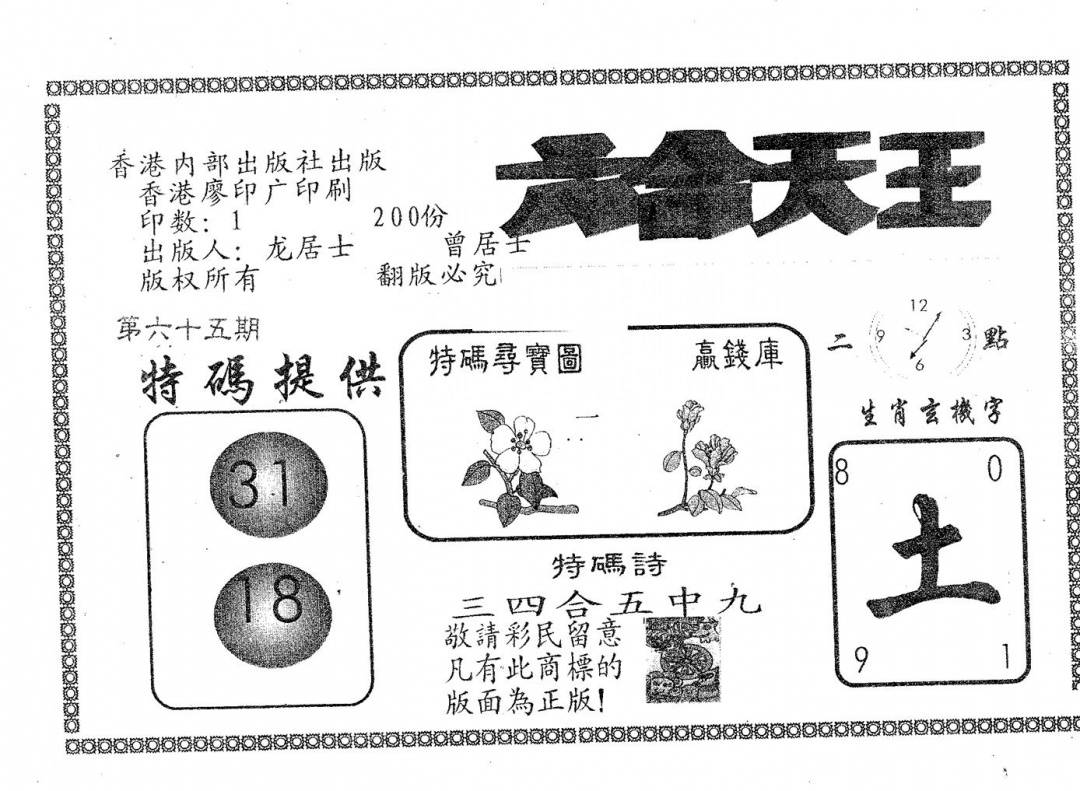 六合天王
香港内部出版社出版
香港廖印广印刷
印数: 1 200份
出版人: 龙居士 曾居士
版权所有 翻版必究
第六十五期
特碼提供
31
18
特碼尋寶圖 贏錢庫
一
二 點
12
9 3
6
生肖玄機字
8 0
土
9 1
特碼詩
三四合五中九
敬請彩民留意
凡有此商標的
版面為正版!